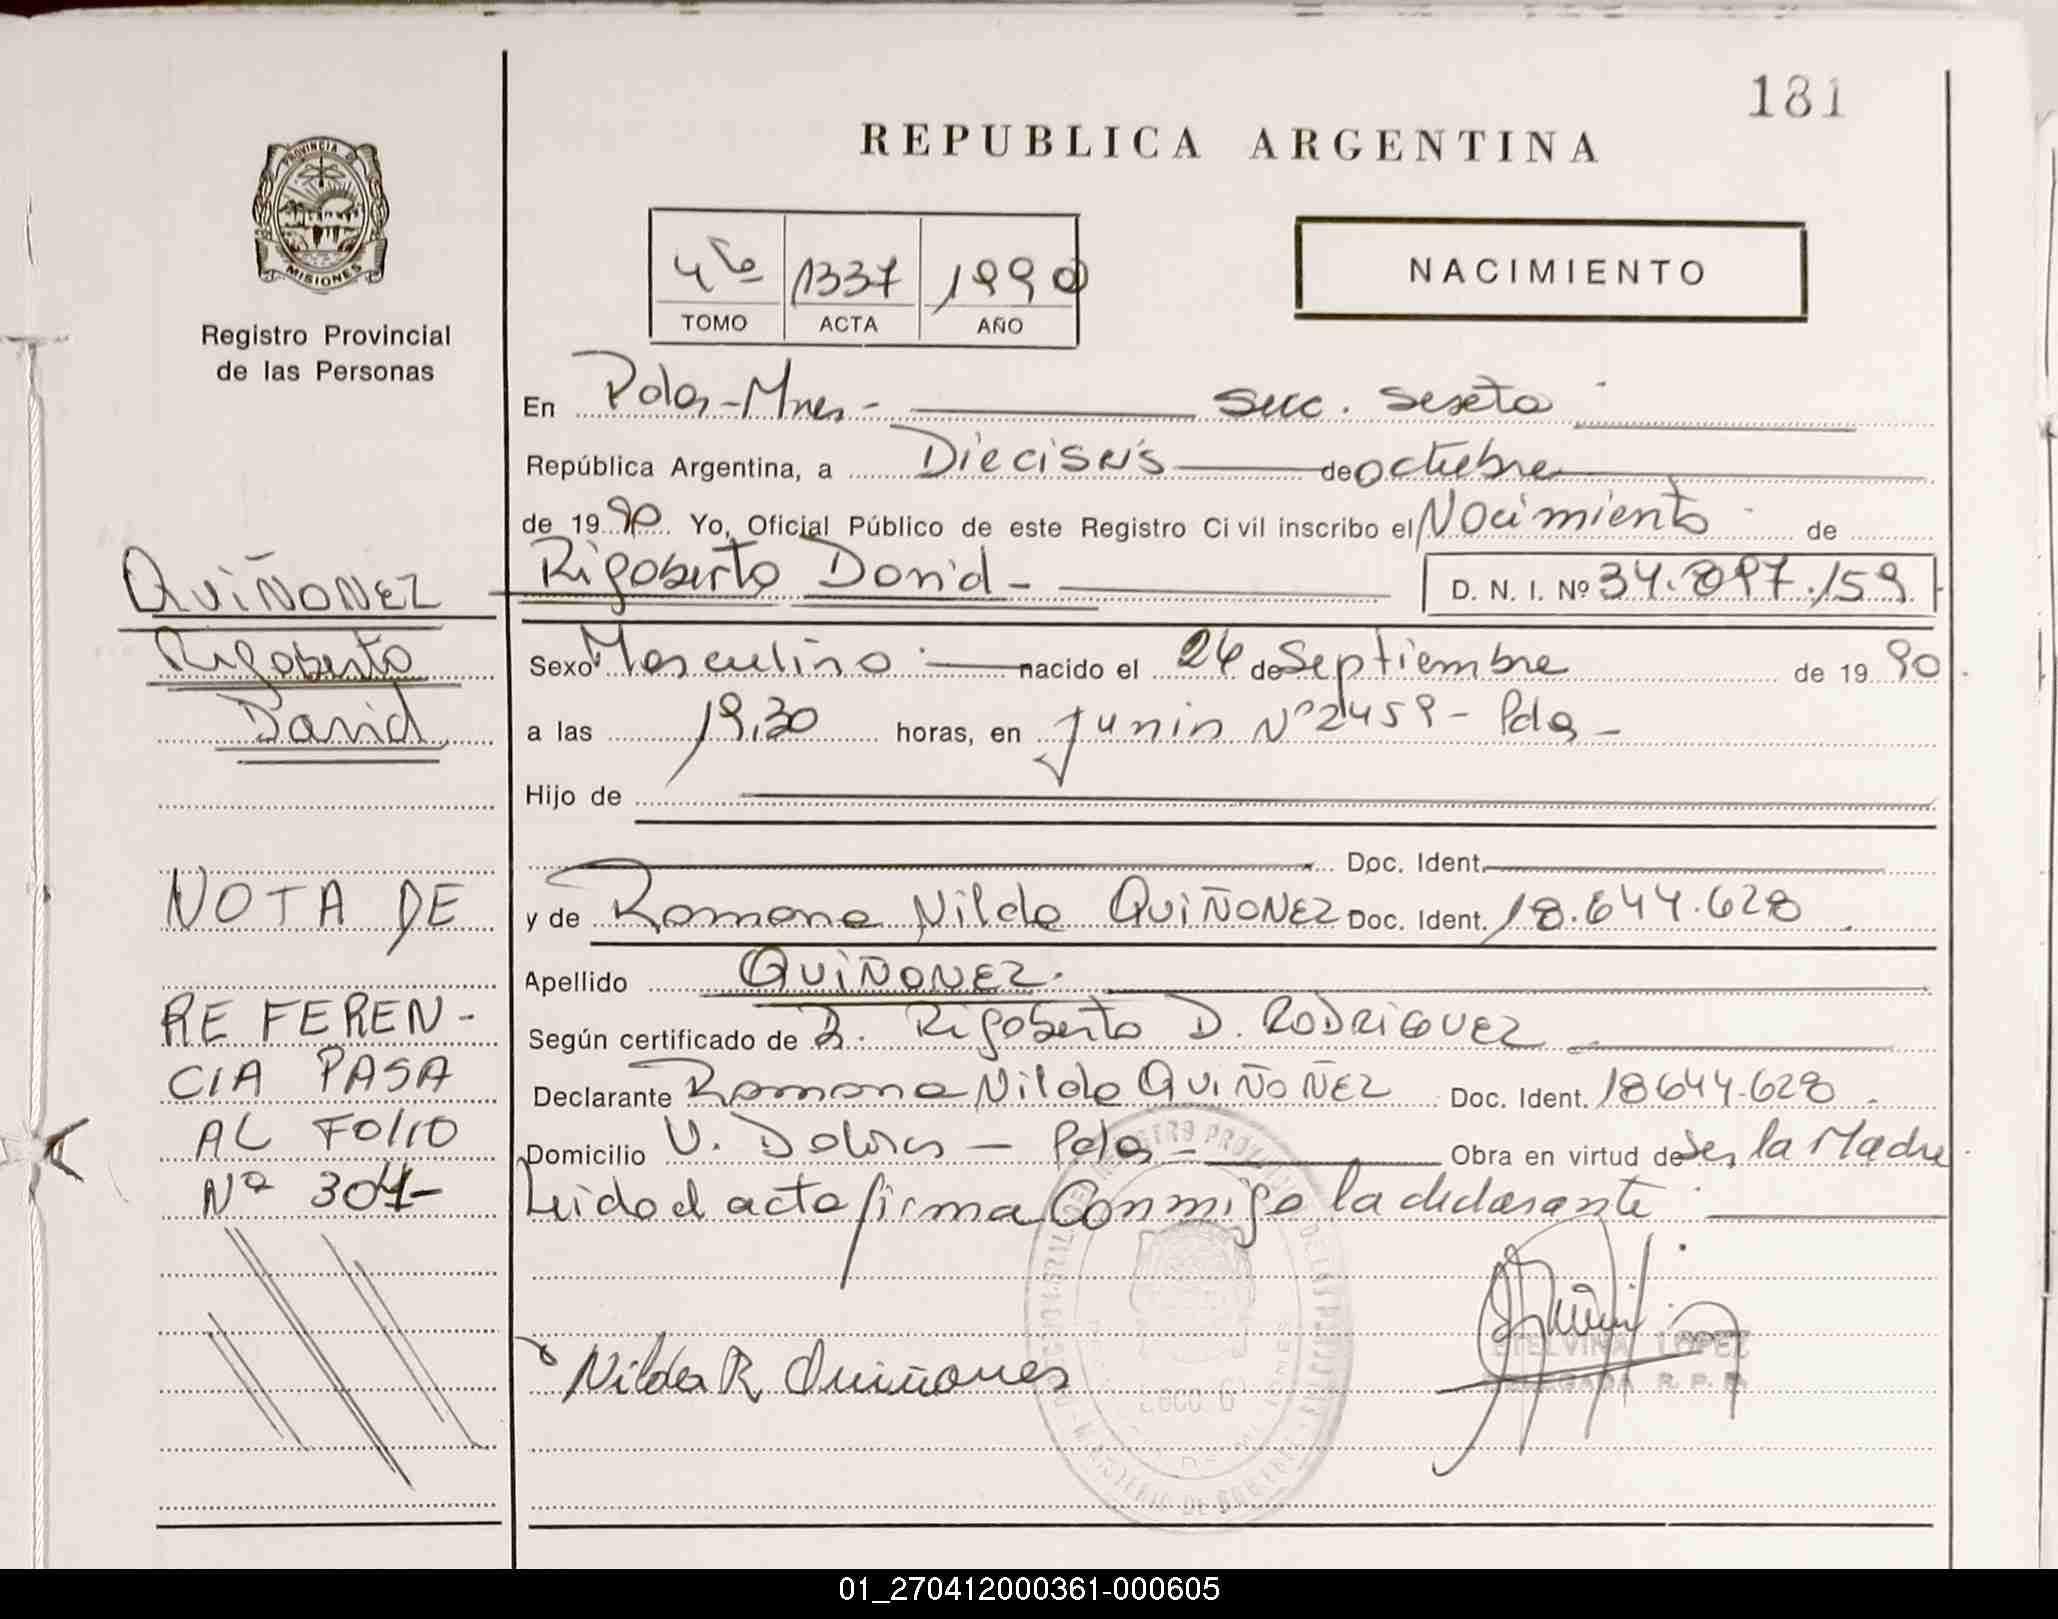 181
REPUBLICA ARGENTINA
PROVINCIA DE
MISIONES
Registro Provincial
de las Personas
4to 1337 1990
TOMO ACTA AÑO
NACIMIENTO
En Pdas-Mnes- secc. sexta
República Argentina, a Dieciseis de octubre
de 1990 Yo, Oficial Público de este Registro Civil inscribo el Nacimiento de
QUIÑONEZ
Rigoberto David
Rigoberto David - D. N. I. Nº 34.897.159
Sexo Masculino nacido el 24 de Septiembre de 1990
a las 19,30 horas, en Junin Nº 2459 - Pdas -
Hijo de
Doc. Ident.
y de Ramona Nilda QUIÑONEZ Doc. Ident. 18.644.628
Apellido QUIÑONEZ.
Según certificado de D. Rigoberto D. RODRIGUEZ
Declarante Ramona Nilda QUIÑOÑEZ Doc. Ident. 18644.628
Domicilio V. Dolores - Pdas - Obra en virtud de Ser la Madre
Leida el acta firma conmigo la declarante
NOTA DE
REFEREN-
CIA PASA
AL FOLIO
Nº 304-
Nilda R Quiñones
ETELVINA LOPEZ
DELEGADA R. P. P.
01_270412000361-000605